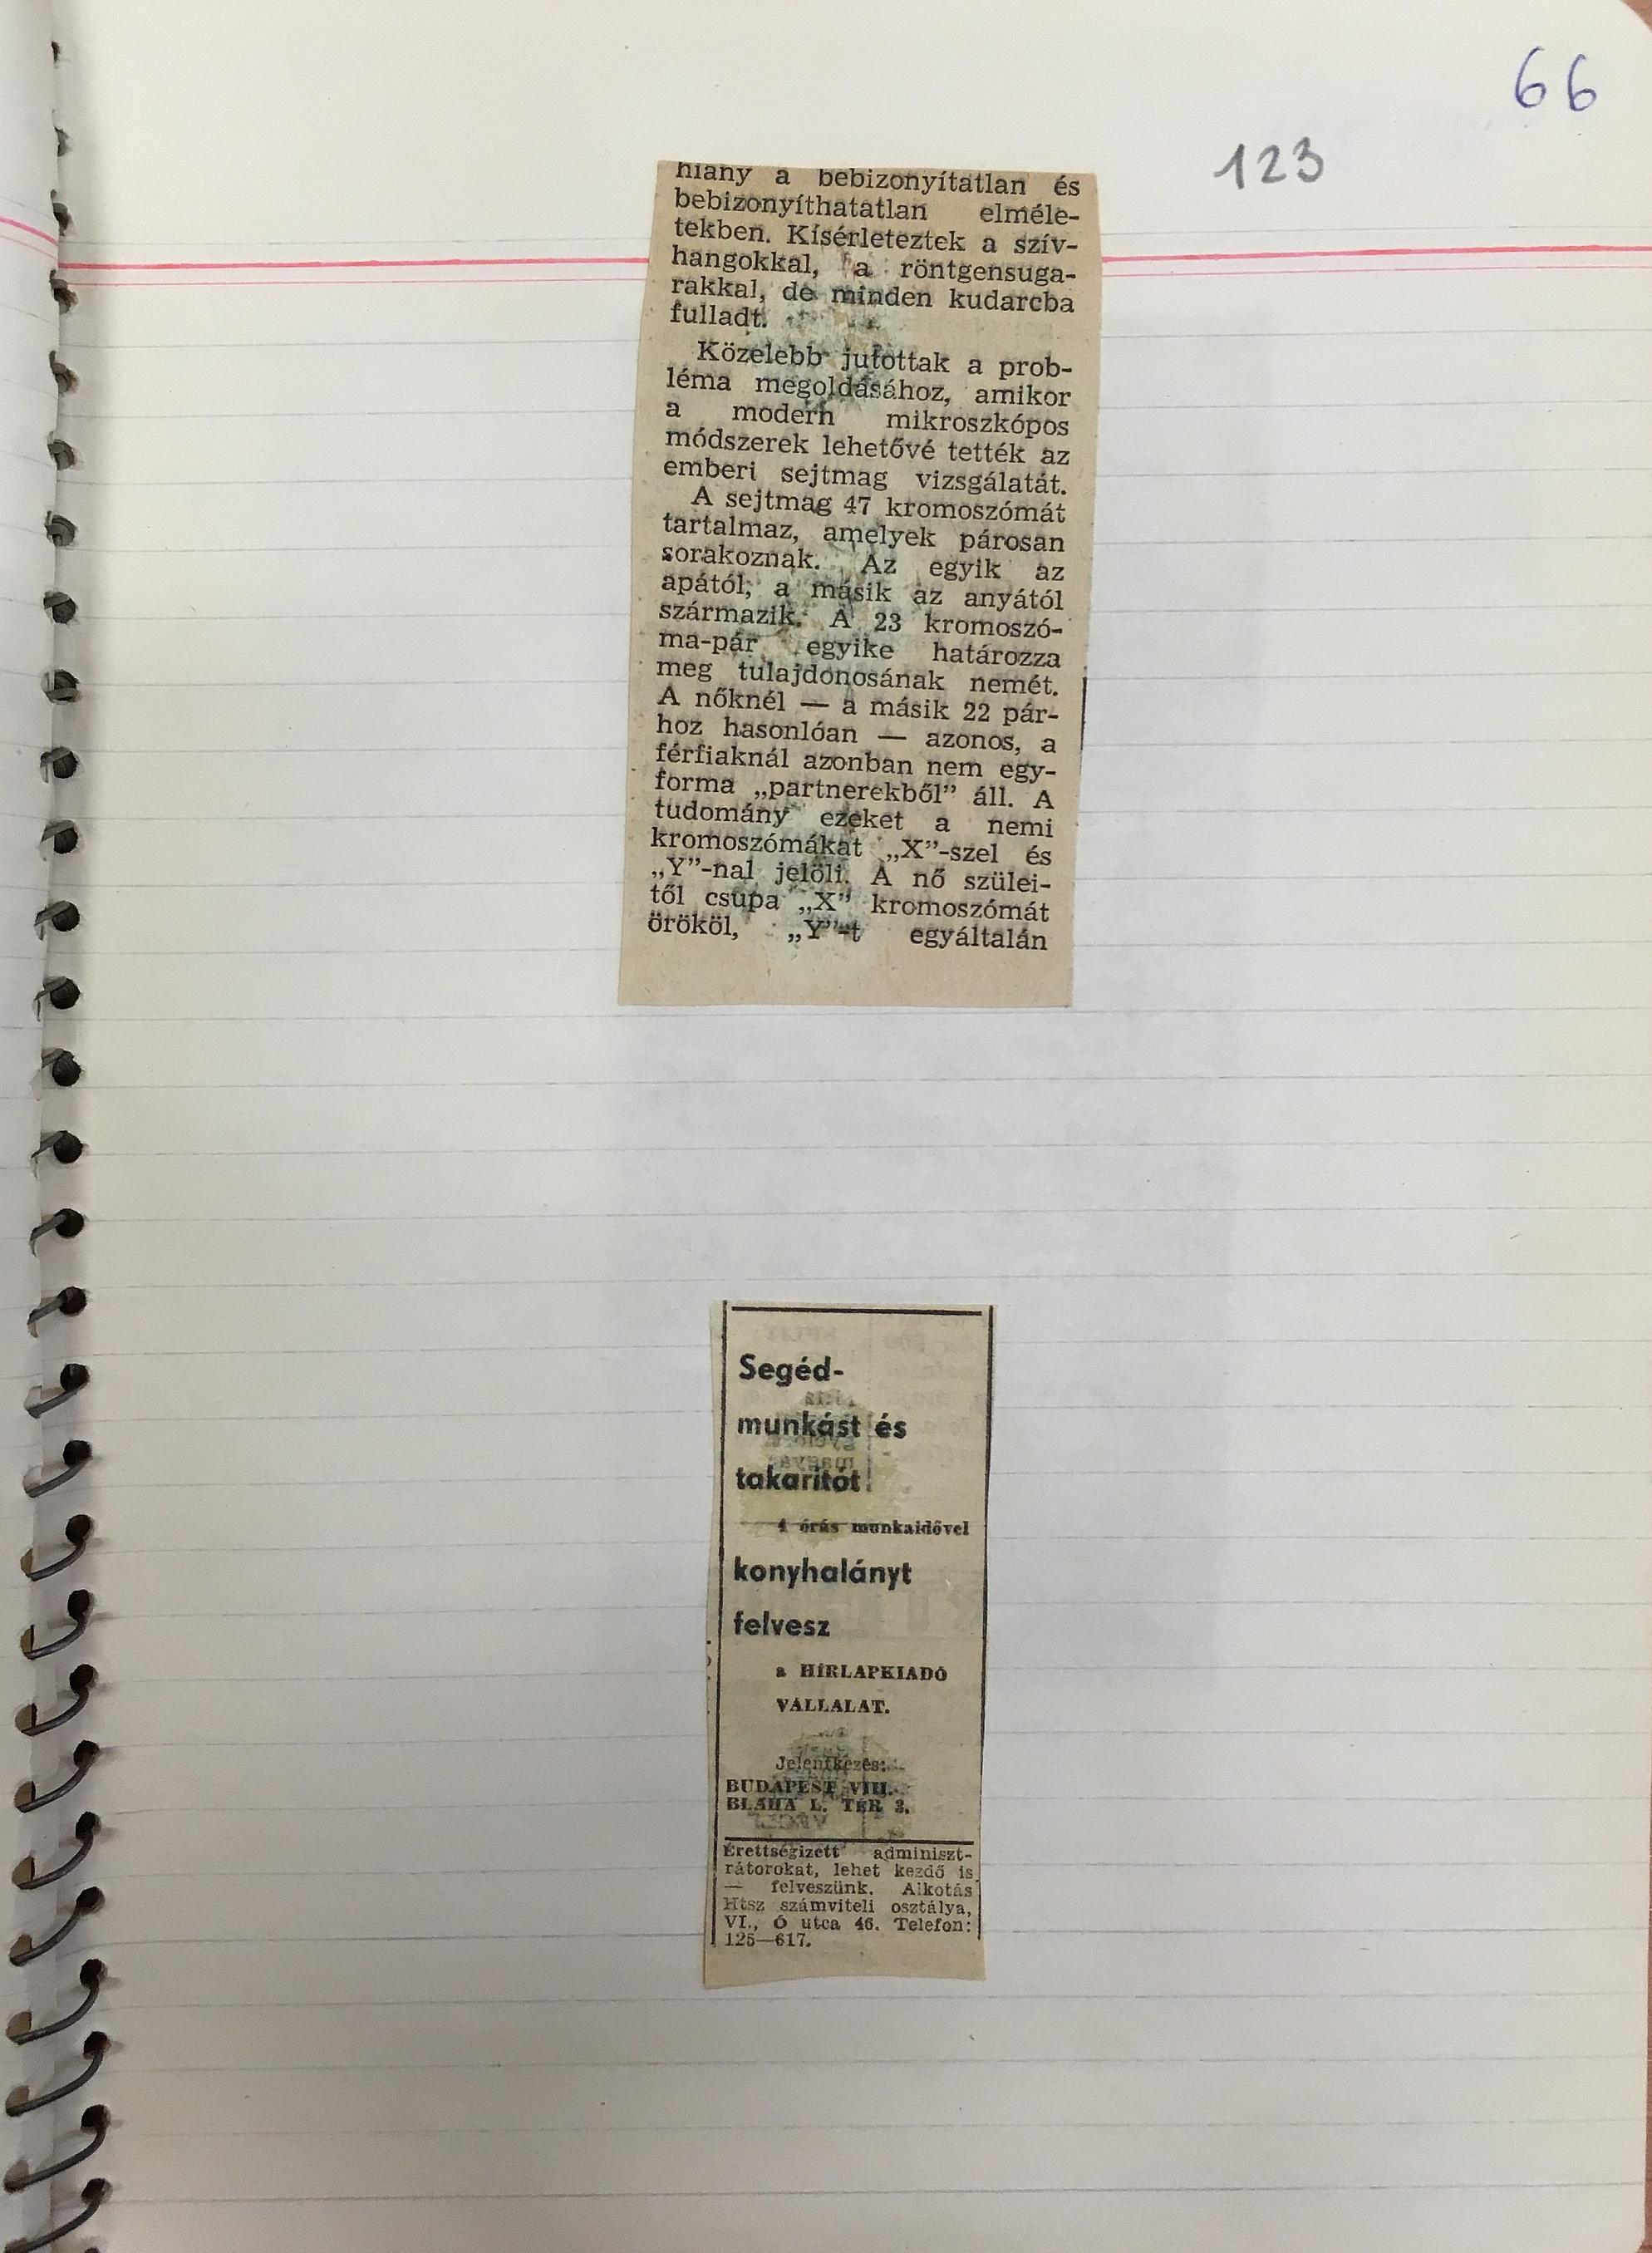 66
123
hiány a bebizonyítatlan és
bebizonyíthatatlan elméle-
tekben. Kísérleteztek a szív-
hangokkal, a röntgensuga-
rakkal, de minden kudarcba
fulladt.
Közelebb jutottak a prob-
léma megoldásához, amikor
a modern mikroszkópos
módszerek lehetővé tették az
emberi sejtmag vizsgálatát.
A sejtmag 47 kromoszómát
tartalmaz, amelyek párosan
sorakoznak. Az egyik az
apától, a másik az anyától
származik. A 23 kromoszó-
ma-pár egyike határozza
meg tulajdonosának nemét.
A nőknél — a másik 22 pár-
hoz hasonlóan — azonos, a
férfiaknál azonban nem egy-
forma „partnerekből” áll. A
tudomány ezeket a nemi
kromoszómákat „X”-szel és
„Y”-nal jelöli. A nő szülei-
től csupa „X” kromoszómát
örököl, „Y”-t egyáltalán
Segéd-
munkást és
takarítót
4 órás munkaidővel
konyhalányt
felvesz
a HÍRLAPKIADÓ
VÁLLALAT.
Jelentkezés:
BUDAPEST VIII.
BLAHA L. TÉR 3.
Érettségizett adminiszt-
rátorokat, lehet kezdő is
— felveszünk. Alkotás
Htsz számviteli osztálya,
VI., Ó utca 46. Telefon:
125—617.